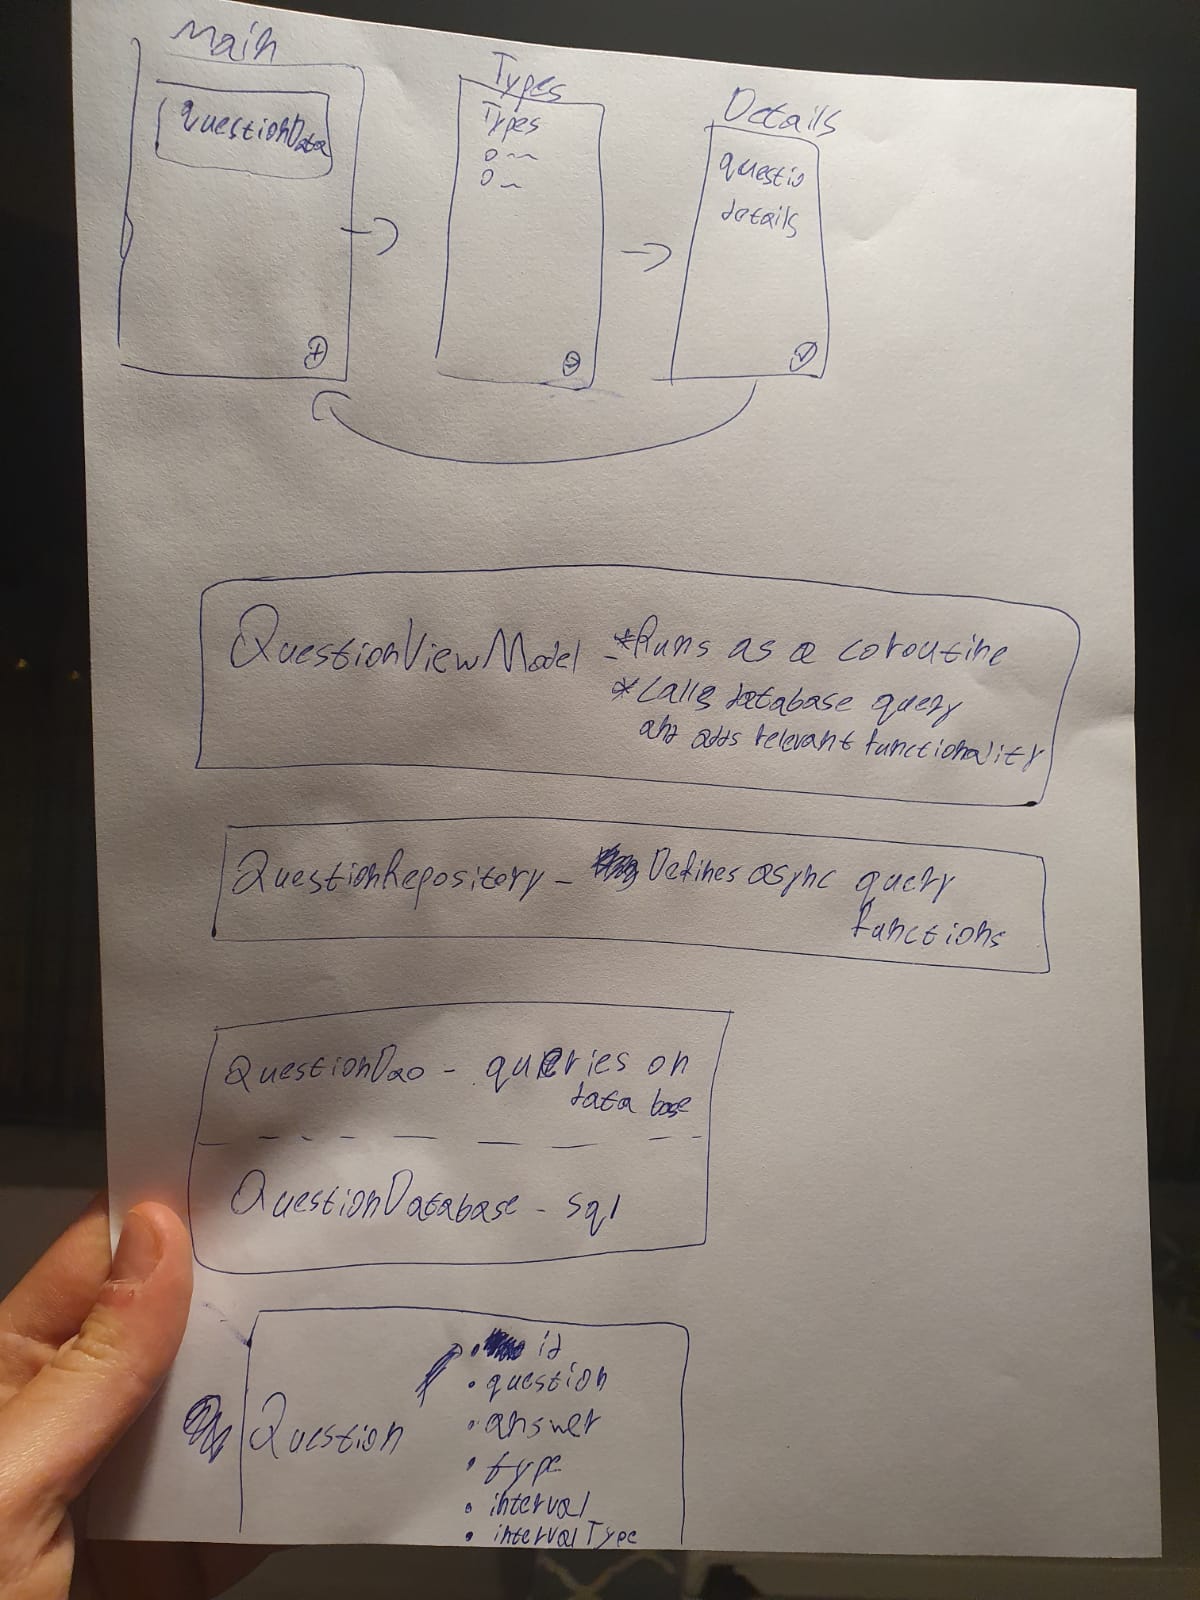 Main
QuestionData
Types
Types
Details
questio
details
QuestionViewModel - *Runs as a coroutine
*Calls database query
and adds relevant functionality
QuestionRepository - Defines async query
functions
QuestionDao - queries on
data base
QuestionDatabase - sql
Question
• id
• question
• answer
• type
• interval
• intervalType